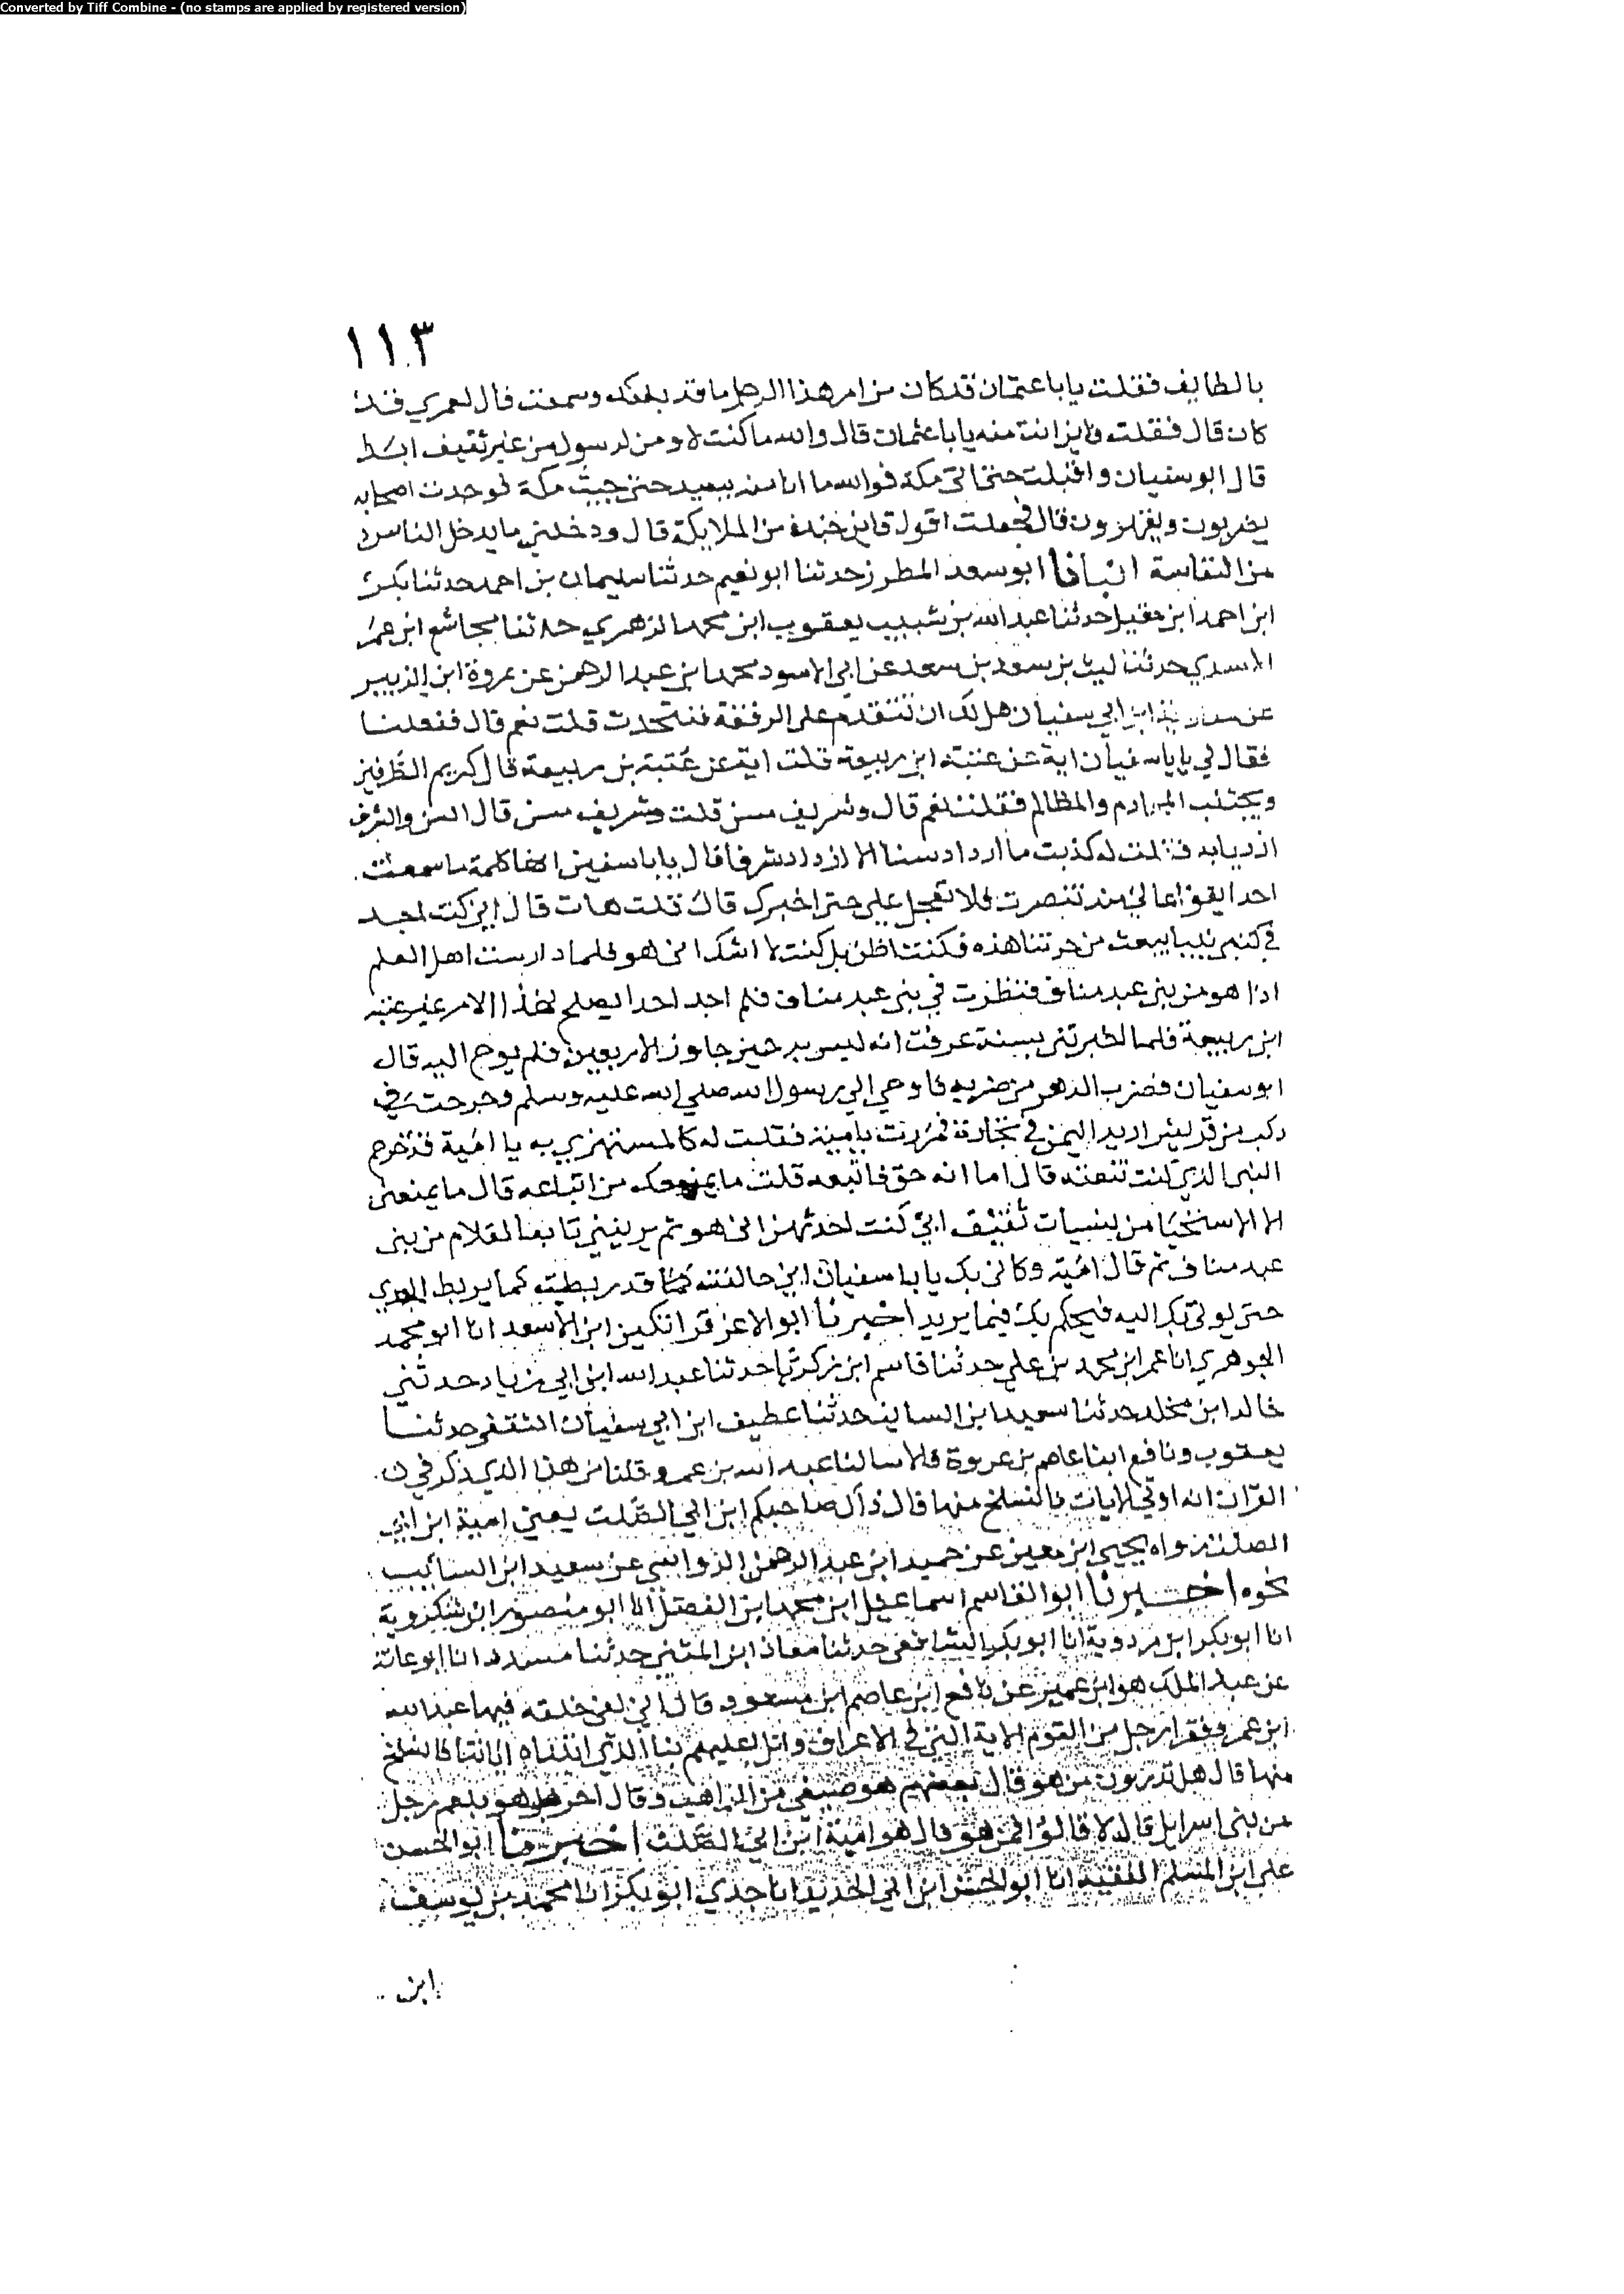 Converted by Tiff Combine - (no stamps are applied by registered version)
١١٣
بالطايف فقلت يابا عثمان قد كان من امر هذا الرجل ما قد بلغك وسمعت قال لعمري قد
كان قال فقلت فاين انت منه يابا عثمان قال والله ما كنت لاومن لرسول من غير ثقيف ابدا
قال ابو سفيان واقبلت حتى اتى مكة فوالله ما انا منه ببعيد حتى جيت مكة فوجدت اصحابه
يضربون ويقهرون قال فجعلت اقول فاين جنده من الملايكة قال ودخلني ما يدخل الناس
من النفاسة انبانا ابو سعد المطرز حدثنا ابو نعيم حدثنا سليمان بن احمد حدثنا بكر
ابن احمد ابن مقبل حدثنا عبد الله بن شبيب يعقوب ابن محمد الزهري حدثنا مجاشع ابن عمر
الاسدي حدثنا ليث بن سعد بن سعد عن ابي الاسود محمد ابن عبد الرحمن عن عروة ابن الزبير
عن ابن ابي سفيان هل لك ان نتقدم على الرفقة فنتحدث قلت نعم قال ففعلنا
فقال لي يابا سفيان اية عن عتبة ابن ربيعة قلت اية عن عتبة بن ربيعة قال كريم الطرفين
ويجتنب المحارم والمظالم فقلت نعم قال وشريف مسن قلت وشريف مسن قال السن والشرف
ازريا به فقلت له كذبت ما ازداد سنا الا ازداد شرفا قال يابا سفين انها كلمة ما سمعت
احدا يقولها لي منذ تنصرت فلا تعجل علي حتى اخبرك قال قلت هات قال اني كنت اجد
في كتبي نبيا يبعث من حرتنا هذه فكنت اظن بل كنت لا اشك اني هو فلما دارست اهل العلم
اذا هو من بني عبد مناف فنظرت في بني عبد مناف فلم اجد احدا يصلح لهذا الامر غير عتبة
ابن ربيعة فلما اخبرتني بسنه عرفت انه ليس به حين جاوز الاربعين فلم يوح اليه قال
ابو سفيان فضرب الدهر من ضربه فاوحي الى رسول الله صلى الله عليه وسلم وخرجت في
ركب من قريش اريد اليمن في تجارة فمررت بامية فقلت له كالمستهزي به يا امية قد خرج
النبي الذي كنت تنعته قال اما انه حق فاتبعه قلت ما يمنعك من اتباعه قال ما يمنعني
الا الاستحيا من نسيات ثقيف اني كنت احدثهن اني هو ثم يرينني تابعا لغلام من بني
عبد مناف ثم قال امية وكاني بك يابا سفيان ان خالفته قد ربطت كما يربط الجدي
حتى يوتى بك اليه فيحكم بك فيما يريد اخبرنا ابو الاعز قراتكين ابن الاسعد انا ابو محمد
الجوهري انا عمر ابن محمد بن علي حدثنا قاسم ابن زكريا حدثنا عبد الله ابن ابي زياد حدثني
خالد ابن مخلد حدثنا سعيد ابن السايب حدثنا عطيف ابن ابي سفيان الثقفي حدثنا
يعقوب ونافع ابنا عاصم بن عروة قالا سالنا عبد الله بن عمرو قلنا من هذا الذي ذكر في
القران انه اوتي الايات فانسلخ منها قال ذاك صاحبكم ابن ابي الصلت يعني امية ابن ابي
الصلت رواه يحيى ابن معين عن حميد ابن عبد الرحمن الرواسي عن سعيد ابن السايب
نحوه اخبرنا ابو القاسم اسماعيل ابن محمد ابن الفضل انا ابو منصور ابن شكروية
انا ابو بكر ابن مردوية انا ابو بكر الشافعي حدثنا معاذ ابن المثنى حدثنا مسدد انا ابو عانة
عن عبد الملك هو ابن عمير عن نافع ابن عاصم ابن مسعود قال اني لفي حلقة فيها عبد الله
ابن عمر وفقرا رجل من القوم الاية التي في الاعراف واتل عليهم نبا الذي اتيناه اياتنا فانسلخ
منها قال هل تدرون من هو فقال بعضهم هو صيفي من الراهب وقال اخر بل هو بلعم رجل
من بني اسرايل قال لا قالوا فمن هو قال هو امية ابن ابي الصلت اخبرنا ابو الحسن
علي ابن المسلم الفقيه انا ابو الحسن ابن ابي الحديد انا جدي ابو بكر انا محمد بن يوسف
ابن